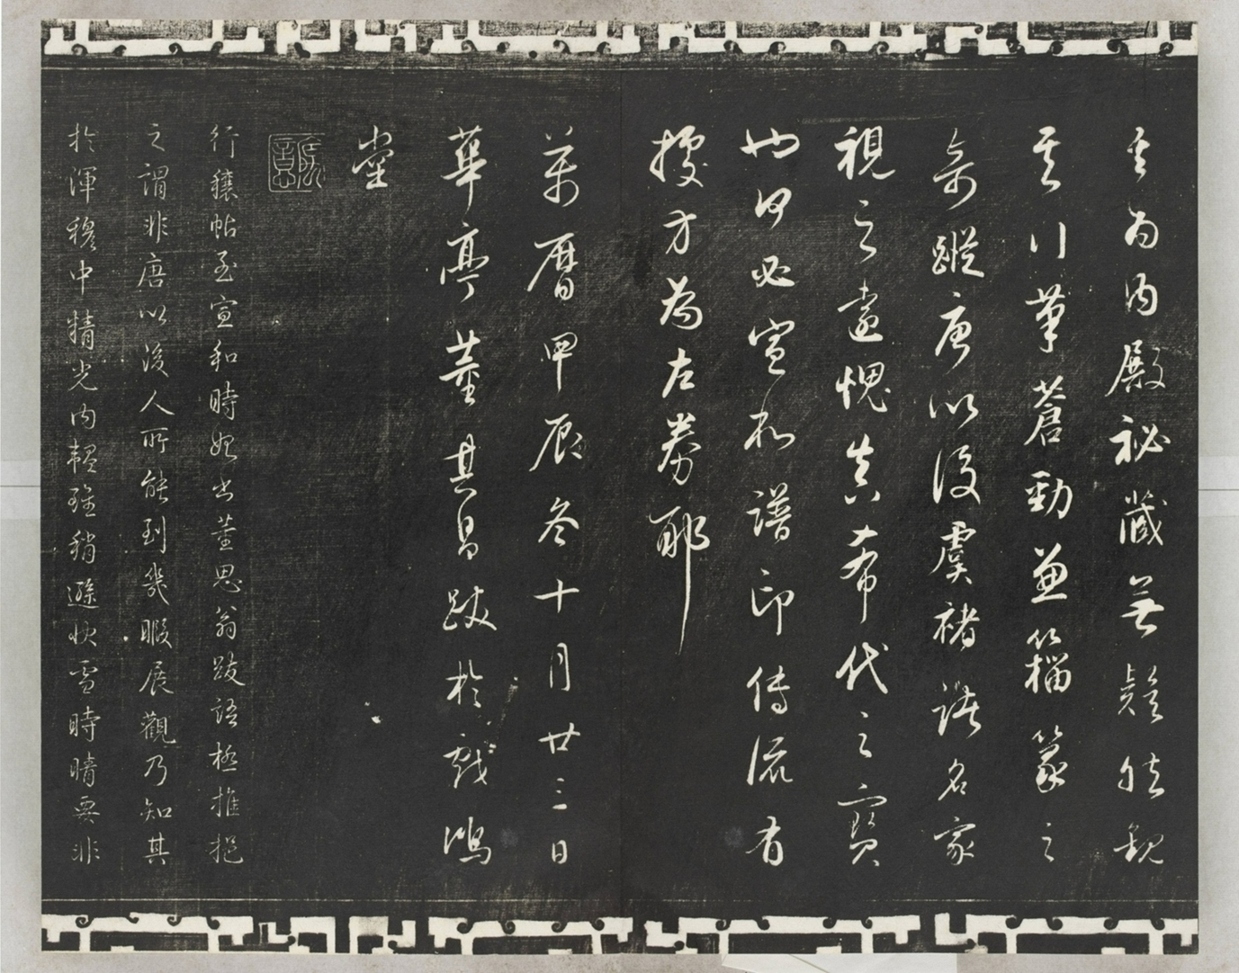 其為内殿秘藏無疑然觀
其行筆蒼勁兼籀篆之
奇蹤唐以後虞褚諸名家
視之遠愧真希代之寶
也何必宣和譜印傳流有
據方為左券耶
萬曆甲辰冬十月廿三日
華亭董其昌跋於戲鴻
堂
行穰帖至宣和時始出董思翁跋語極推挹
之謂非唐以後人所能到幾暇展觀乃知其
於渾穆中精光内韞雖稍遜快雪時晴要非